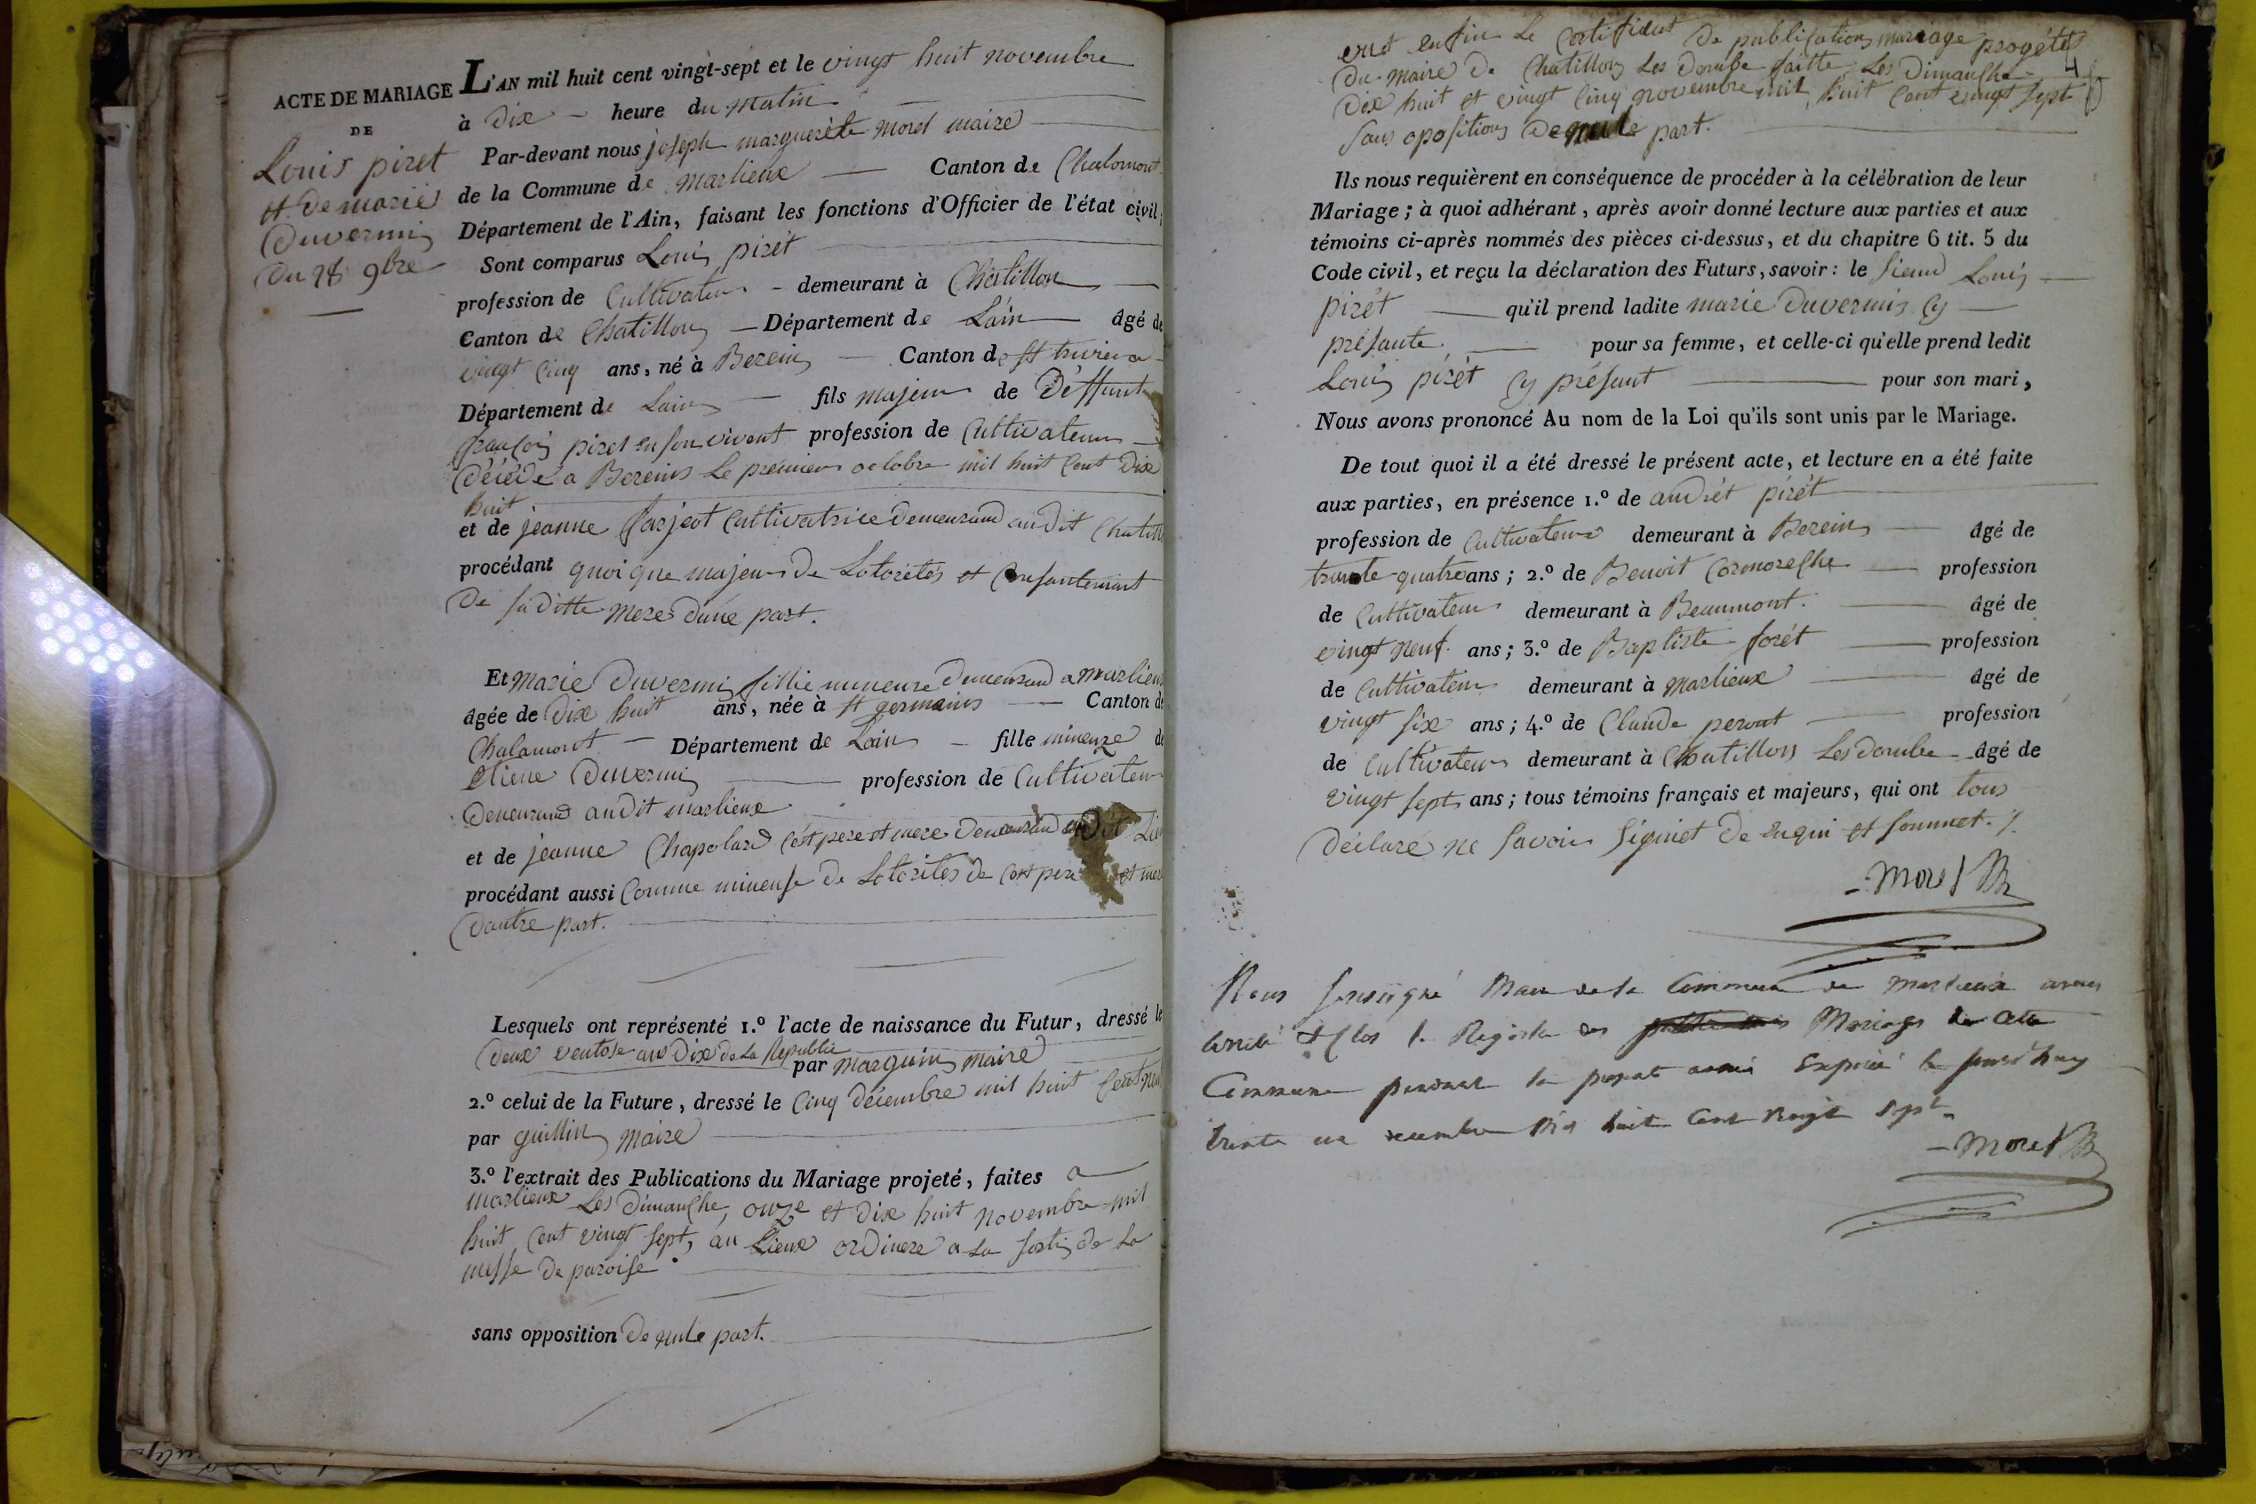 ACTE DE MARIAGE
DE
Louis piret
et de marie
Duvernis
du 28 9bre
L'AN mil huit cent vingt-sept et le vingt huit novembre
à Dix heure du matin
Par-devant nous joseph marguerite morel maire
de la Commune de marlieux Canton de Chalamont
Département de l'Ain, faisant les fonctions d'Officier de l'état civil,
Sont comparus Louis pirét
profession de Cultivateur demeurant à Chatillon
Canton de Chatillon Département de Lain âgé de
vingt Cinq ans, né à Berein Canton de st trivier
Département de Lain fils majeur de Déffunt
françois piret en son vivent profession de Cultivateur
décédé a Bereins le premier octobre mil huit Cent Dix
huit
et de jeanne farjeot Cultivatrice demeurand audit Chatillon
procédant quoi que majeur de Lotorités et Consantement
De sa ditte mere dune part.
Et marie Duvernis fillie mineure demeurand a marlieux
âgée de dix huit ans, née à st germains Canton de
Chalamont Département de Lain fille mineure de
Etiene Duvernis profession de Cultivateur
demeurand audit marlieux
et de jeanne Chapolard Cést pere et mere demeurand audit Lieu
procédant aussi Comme mineuse de Lotorités de Cest pere et mere
dautre part.
Lesquels ont représenté 1.º l'acte de naissance du Futur, dressé le
deux ventose an dix de La Republic par marguin maire
2.º celui de la Future, dressé le Cinq décembre mil huit Cent neuf
par guillin maire
3.º l'extrait des Publications du Mariage projeté, faites a
marlieux Les dimanche, onze et dix huit novembre mil
huit Cent vingt sept, au Lieux ordinere a La sortis de La
messe de paroise
sans opposition de nule part.
4
enet enfin Le Certificat de publications mariage progétés
du maire de Chatillon Les dombe faitte Les Dimanche
dix huit et vingt Cinq novembre mil huit Cent vingt sept
sans opositions de nule part.
Ils nous requièrent en conséquence de procéder à la célébration de leur
Mariage; à quoi adhérant, après avoir donné lecture aux parties et aux
témoins ci-après nommés des pièces ci-dessus, et du chapitre 6 tit. 5 du
Code civil, et reçu la déclaration des Futurs, savoir: le sieur Louis
pirét qu'il prend ladite marie duvernis Cy
présante pour sa femme, et celle-ci qu'elle prend ledit
Louis pirét Cy présant pour son mari,
Nous avons prononcé Au nom de la Loi qu'ils sont unis par le Mariage.
De tout quoi il a été dressé le présent acte, et lecture en a été faite
aux parties, en présence 1.º de andrét pirét
profession de Cultivateur demeurant à Berein âgé de
trante quatre ans; 2.º de Benoit Cormoreche profession
de Cultivateur demeurant à Beaumont. âgé de
vingt neuf. ans; 3.º de Baptiste forét profession
de Cultivateur demeurant à marlieux âgé de
vingt six ans; 4.º de Claude peront profession
de Cultivateur demeurant à Chatillon Les dombe âgé de
vingt sept ans; tous témoins français et majeurs, qui ont tous
déclaré ne savoir signiet de enqui et sommet.
morel
Nous soussigné Maire de la Commune de marlieux avons
arrêté & Clos le Registre des Mariages de cette
Commune pendant la present année Expirée le jourd'huy
trente un decembre Mil huit Cent Vingt Sept
morel